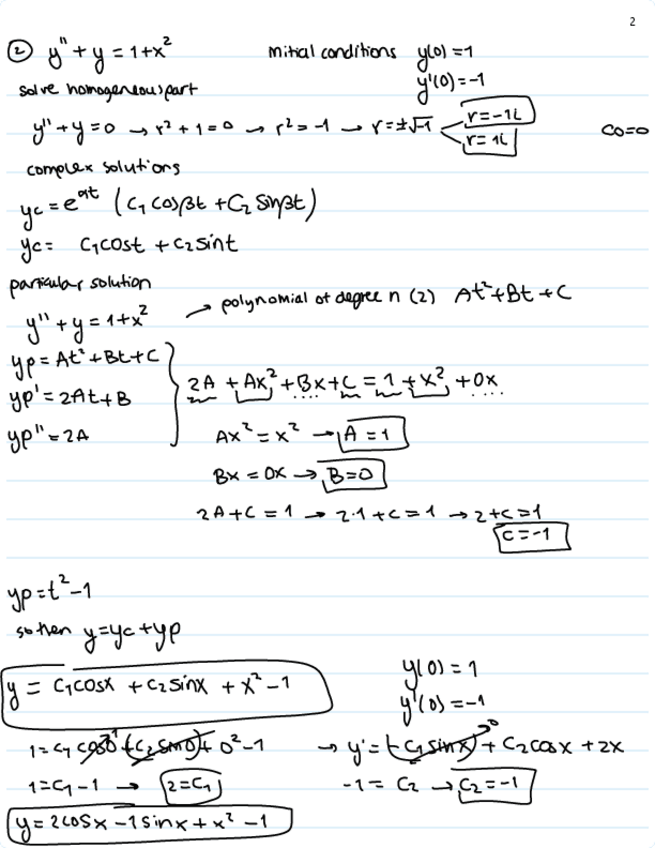 2
② y'' + y = 1+x² initial conditions y(0) = 1
y'(0) = -1
solve homogeneous part
y'' + y = 0 → r² + 1 = 0 → r² = -1 → r = ±√-1 r = -1i
r = 1i
C0=0
complex solutions
yc = e^αt (C₁ cosβt + C₂ sinβt)
yc = C₁cost + C₂sint
particular solution
y'' + y = 1+x² → polynomial of degree n (2) At² + Bt + C
yp = At² + Bt + C
yp' = 2At + B
yp'' = 2A
2A + Ax² + Bx + C = 1 + x² + 0x
Ax² = x² → A = 1
Bx = 0x → B = 0
2A + C = 1 → 2·1 + C = 1 → 2 + C = 1
C = -1
yp = t² - 1
so then y = yc + yp
y = C₁cosx + C₂sinx + x² - 1
y(0) = 1
y'(0) = -1
1 = C₁ cos0 + (C₂ sin0) + 0² - 1 → y' = (-C₁ sinx) + C₂cosx + 2x
1 = C₁ - 1 → 2 = C₁ -1 = C₂ → C₂ = -1
y = 2cosx - 1sinx + x² - 1